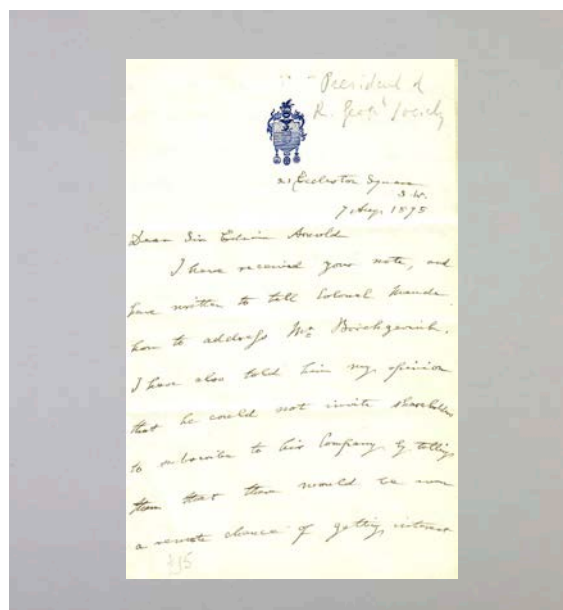 President of
R. Geog<sup>l</sup> Society
21 Eccleston Square
S.W.
7 Aug. 1895
Dear Sir Edwin Arnold
I have received your note, and
have written to tell Colonel
how to address Mr
I have also told him my opinion
that he could not invite shareholders
to subscribe to his Company by telling
them that there would be even
a remote chance of getting interest